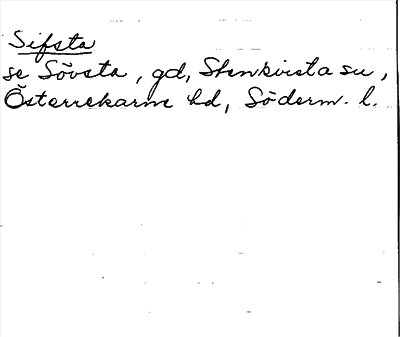 Sifsta
se Sövsta, gd, Stenkvista su,
Österrekarne hd, Söderm. l.